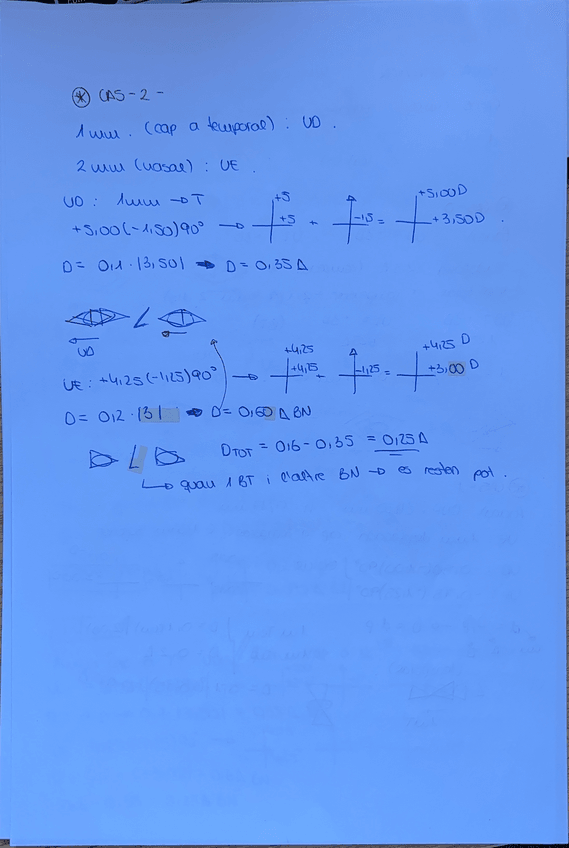 * CAS-2-
1mm. (cap a temporal): UD.
2mm (nasal): UE.
UD: 1mm → T
+5,00(-1,50)90° → +5 +5 + -1,5 = +5,00D +3,50D.
D = 0,1 · |3,50| → D = 0,35 Δ
∠
UD
UE: +4,25(-1,25)90° → +4,25 +4,25 + -1,25 = +4,25 D +3,00 D
D = 0,2 · |3| → D = 0,60 Δ BN
∠ DTOT = 0,6 - 0,35 = 0,25 Δ
↳ quan 1 BT i l'altre BN → es resten pol.